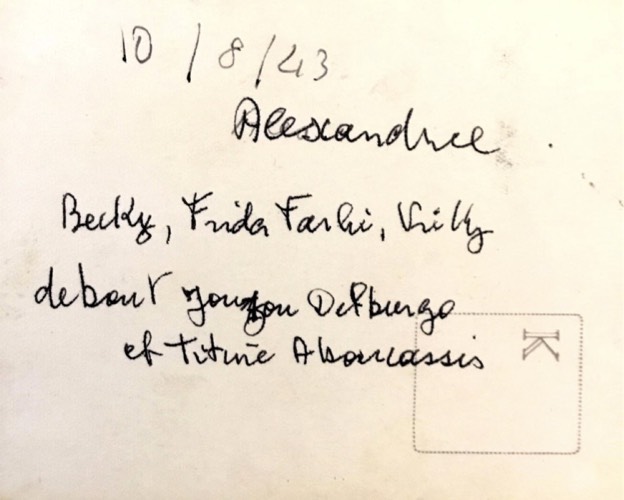 10/8/43
Alexandrie
Becky, Frida Farhi, Vicky
debout Youyou Delburgo
et Titine Aboucassis
K